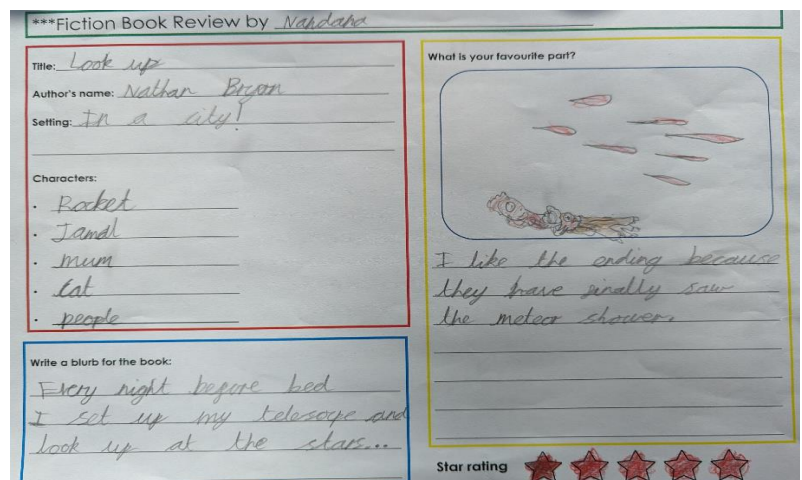 ***Fiction Book Review by Nandana
Title: Look up
Author's name: Nathan Bryon
Setting: In a city!
Characters:
• Rocket
• Jamal
• mum
• cat
• people
Write a blurb for the book:
Every night before bed
I set up my telescope and
look up at the stars...
What is your favourite part?
I like the ending because
they have finally saw
the meteor shower.
Star rating